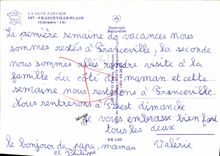 LA COTE FLEURIE
107 - FRANCEVILLE-PLAGE
(Calvados - 14)
La première semaine de vacances nous
sommes restés à Franceville, la seconde
nous sommes allés rendre visite à la
famille du côté de maman et cette
semaine nous restons à Franceville.
Nous rentrerons dimanche
Je vous embrasse bien fort
tous les deux
le bonjour de papa, maman
et Philippe
Valérie